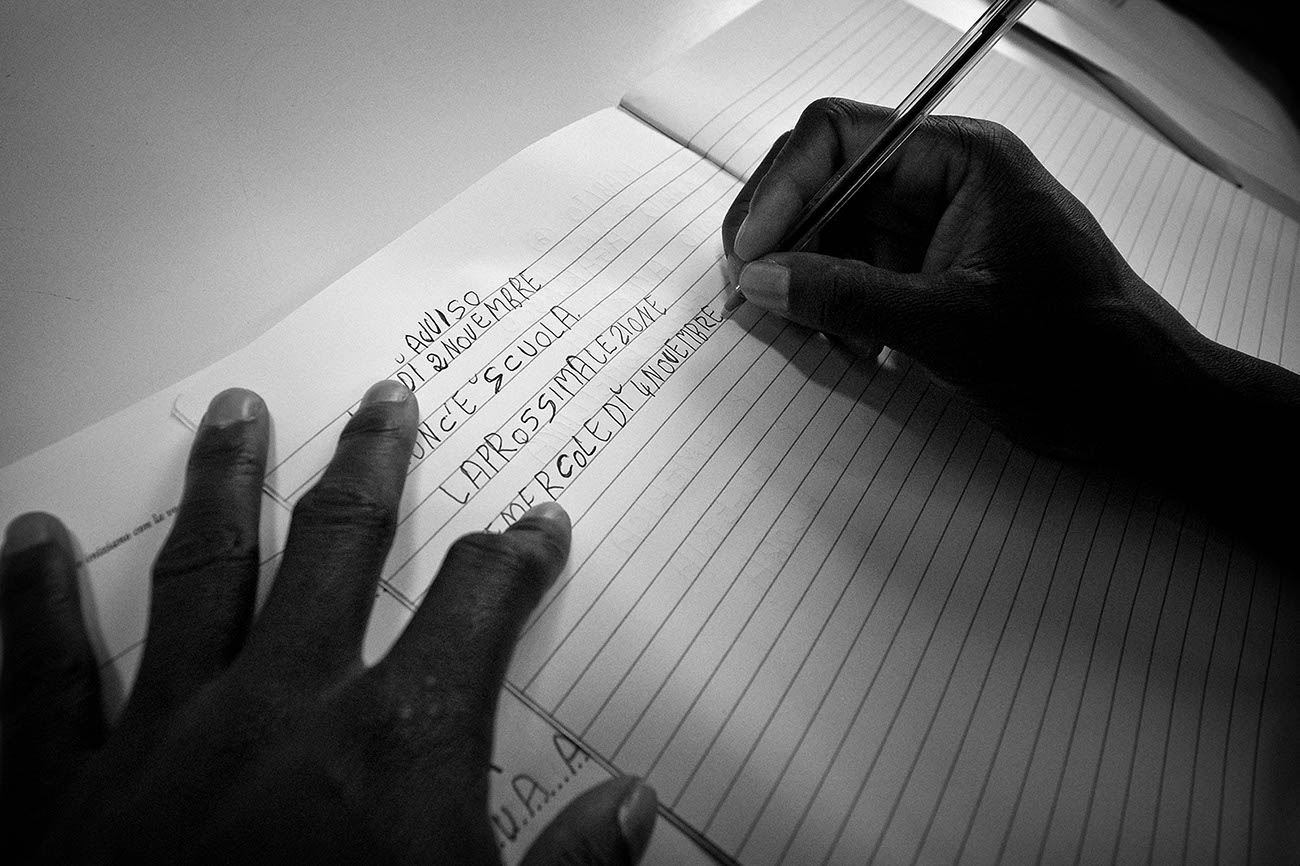 AVVISO
DÌ 2 NOVEMBRE
ON C'È SCUOLA.
LA PROSSIMA LEZIONE
MERCOLEDÌ 4 NOVEMBRE
iniziano con la vo
U.A...A